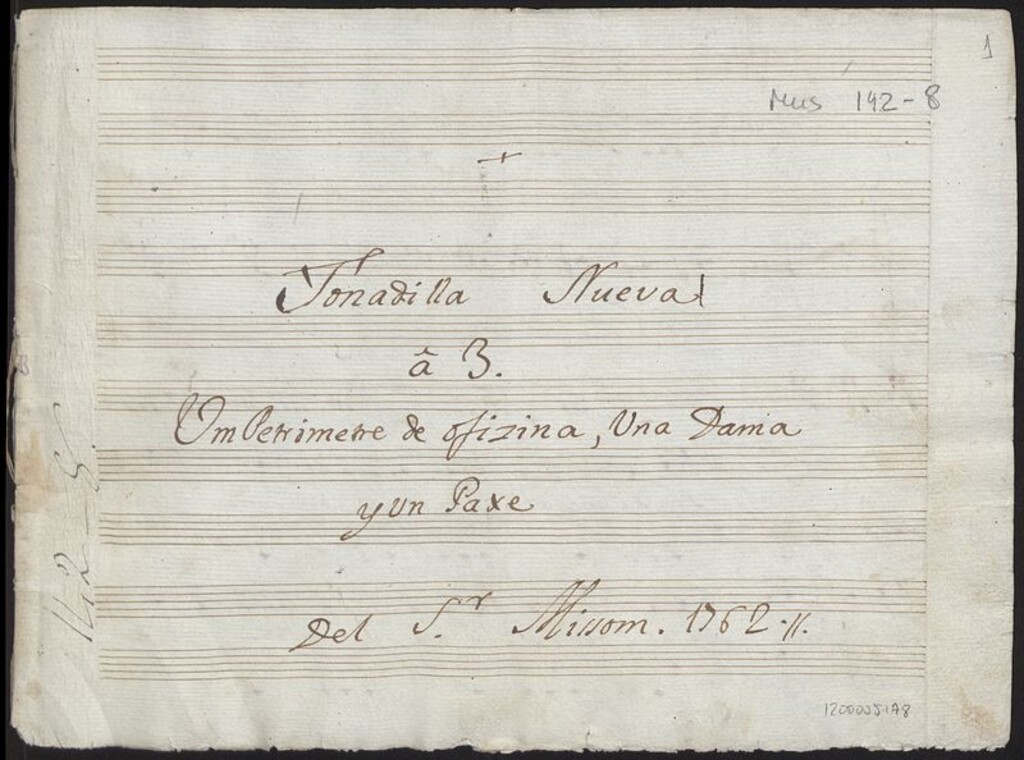 1
Mus 142-8
Tonadilla Nueva
â 3.
Um Petrimetre de ofizina, Una Dama
y Un Paxe
Del S.r Missom. 1762.
142-8